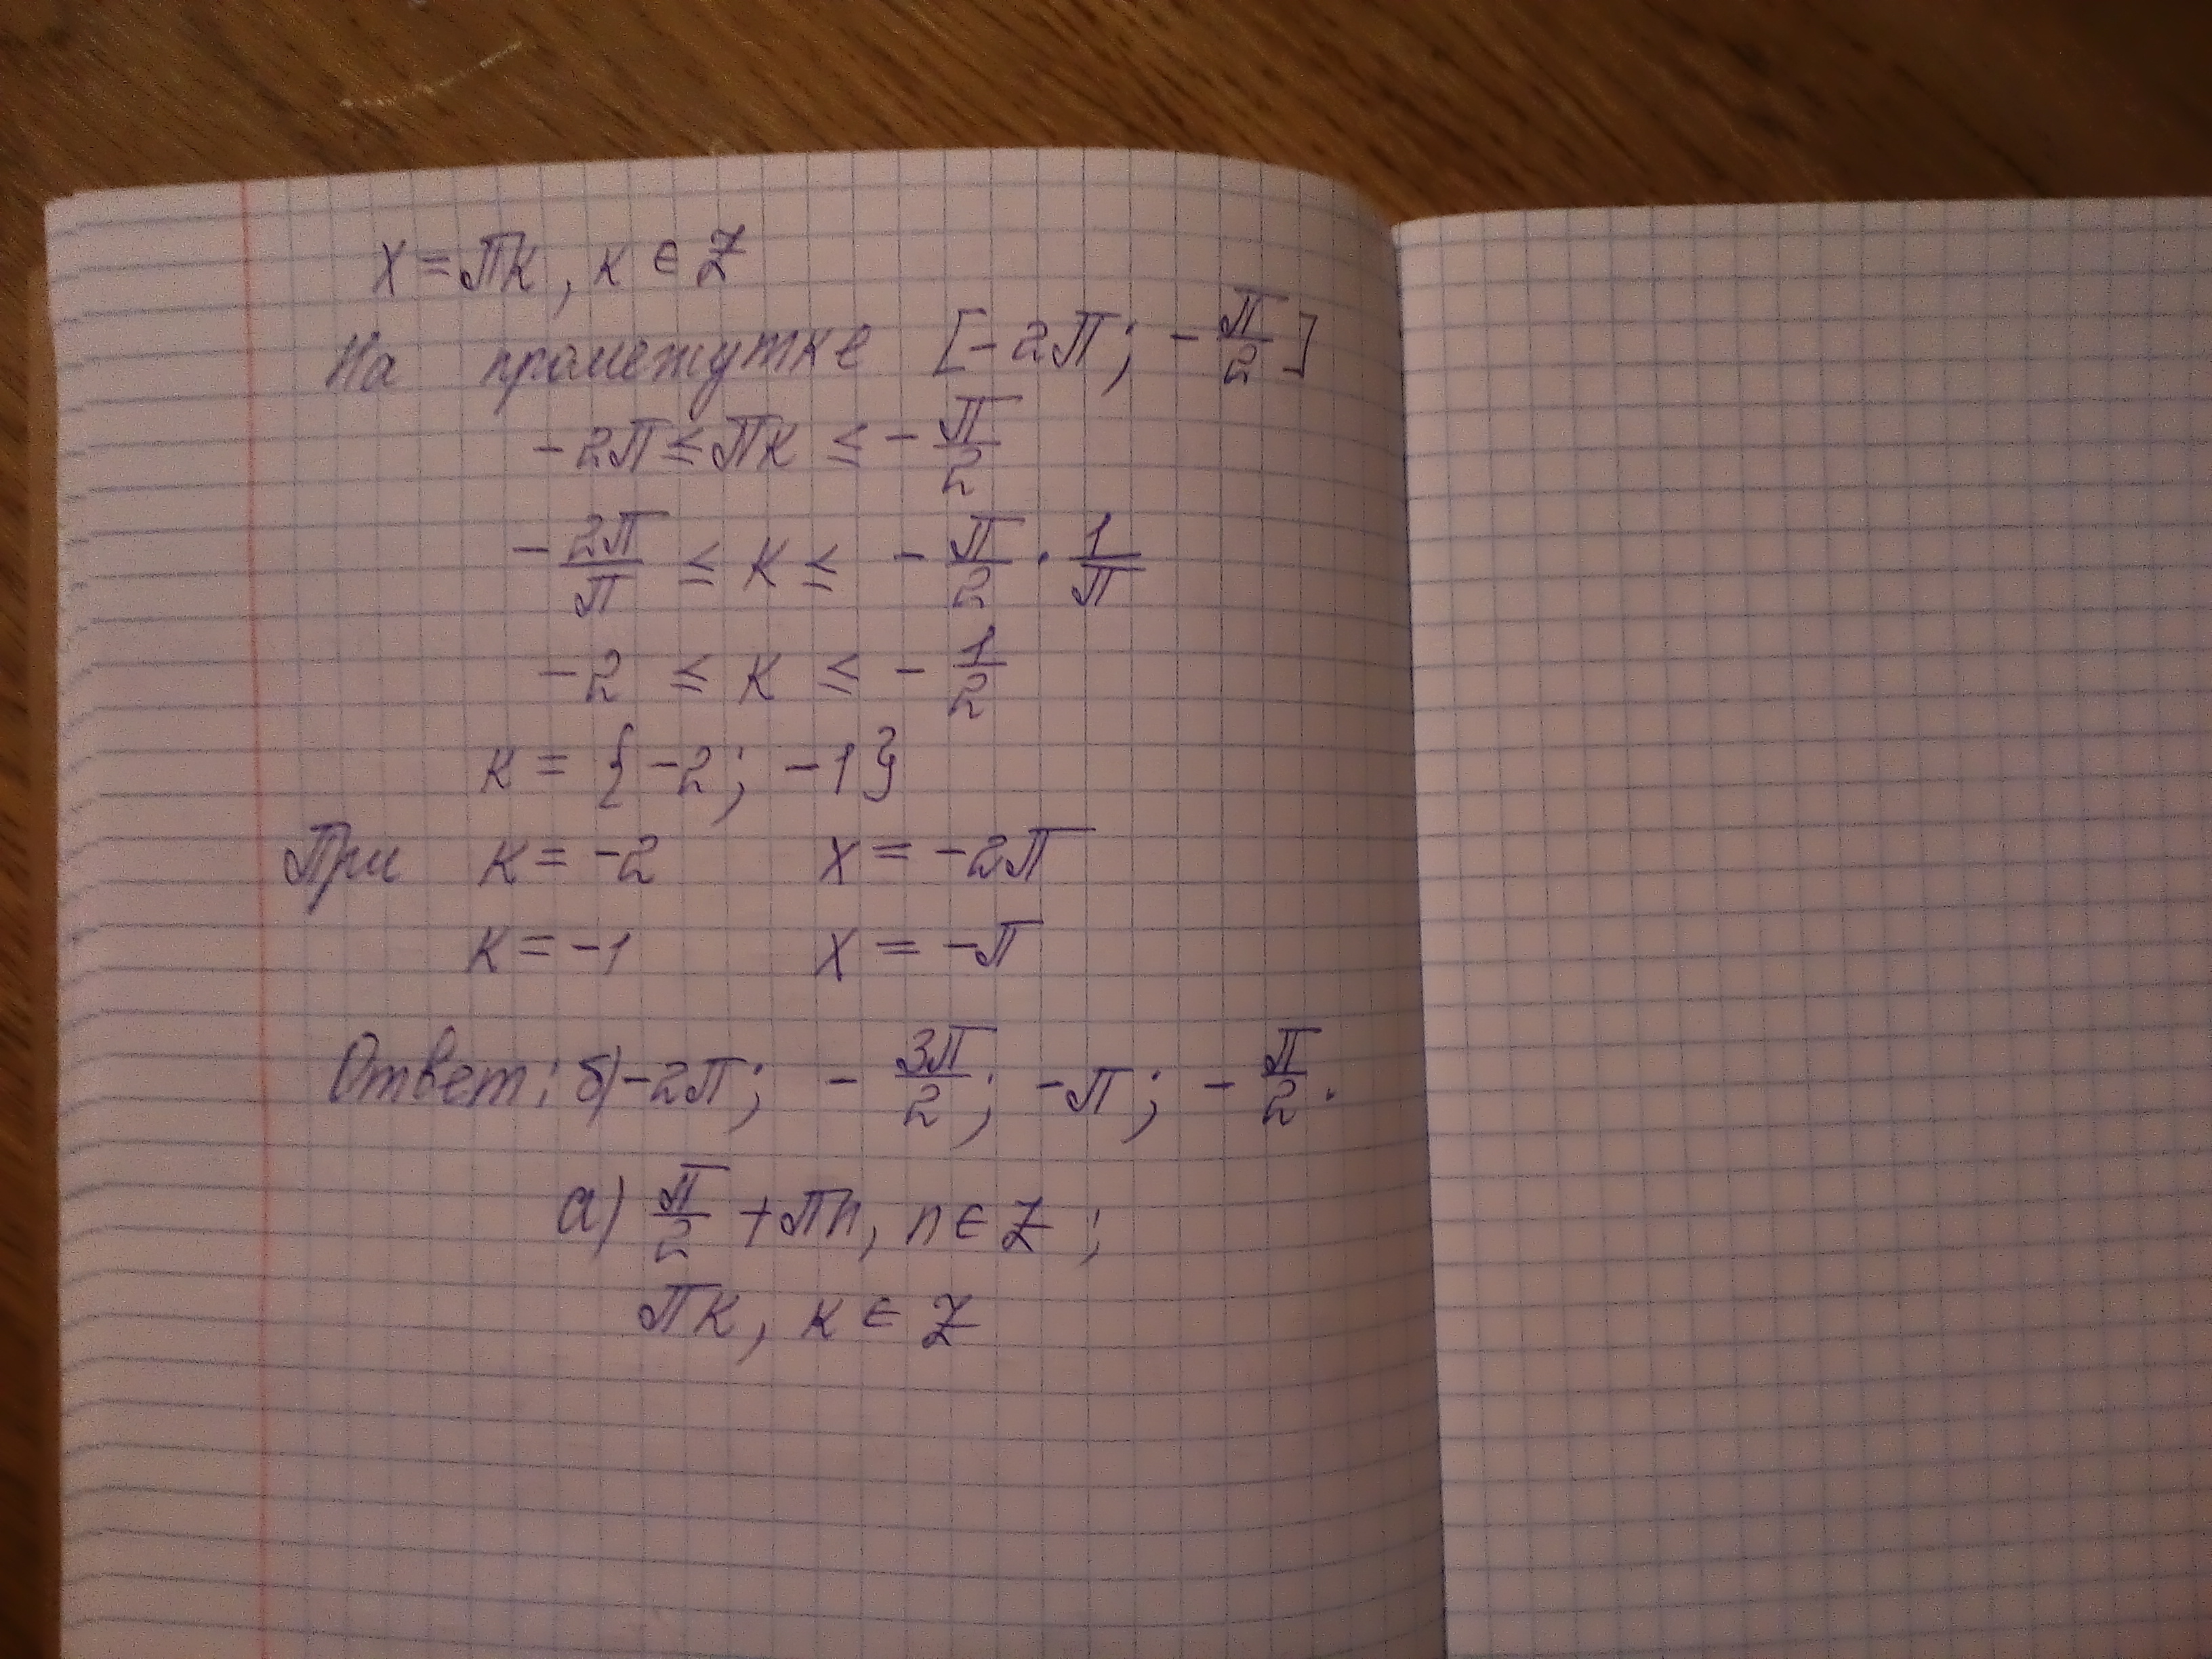 x = πк, к ∈ Z
На промежутке [-2π; -π/2]
-2π ≤ πк ≤ -π/2
-2π/π ≤ к ≤ -π/2 · 1/π
-2 ≤ к ≤ -1/2
к = {-2; -1}
При к = -2 x = -2π
к = -1 x = -π
Ответ: б) -2π; -3π/2; -π; -π/2.
а) π/2 + πn, n ∈ Z;
πк, к ∈ Z